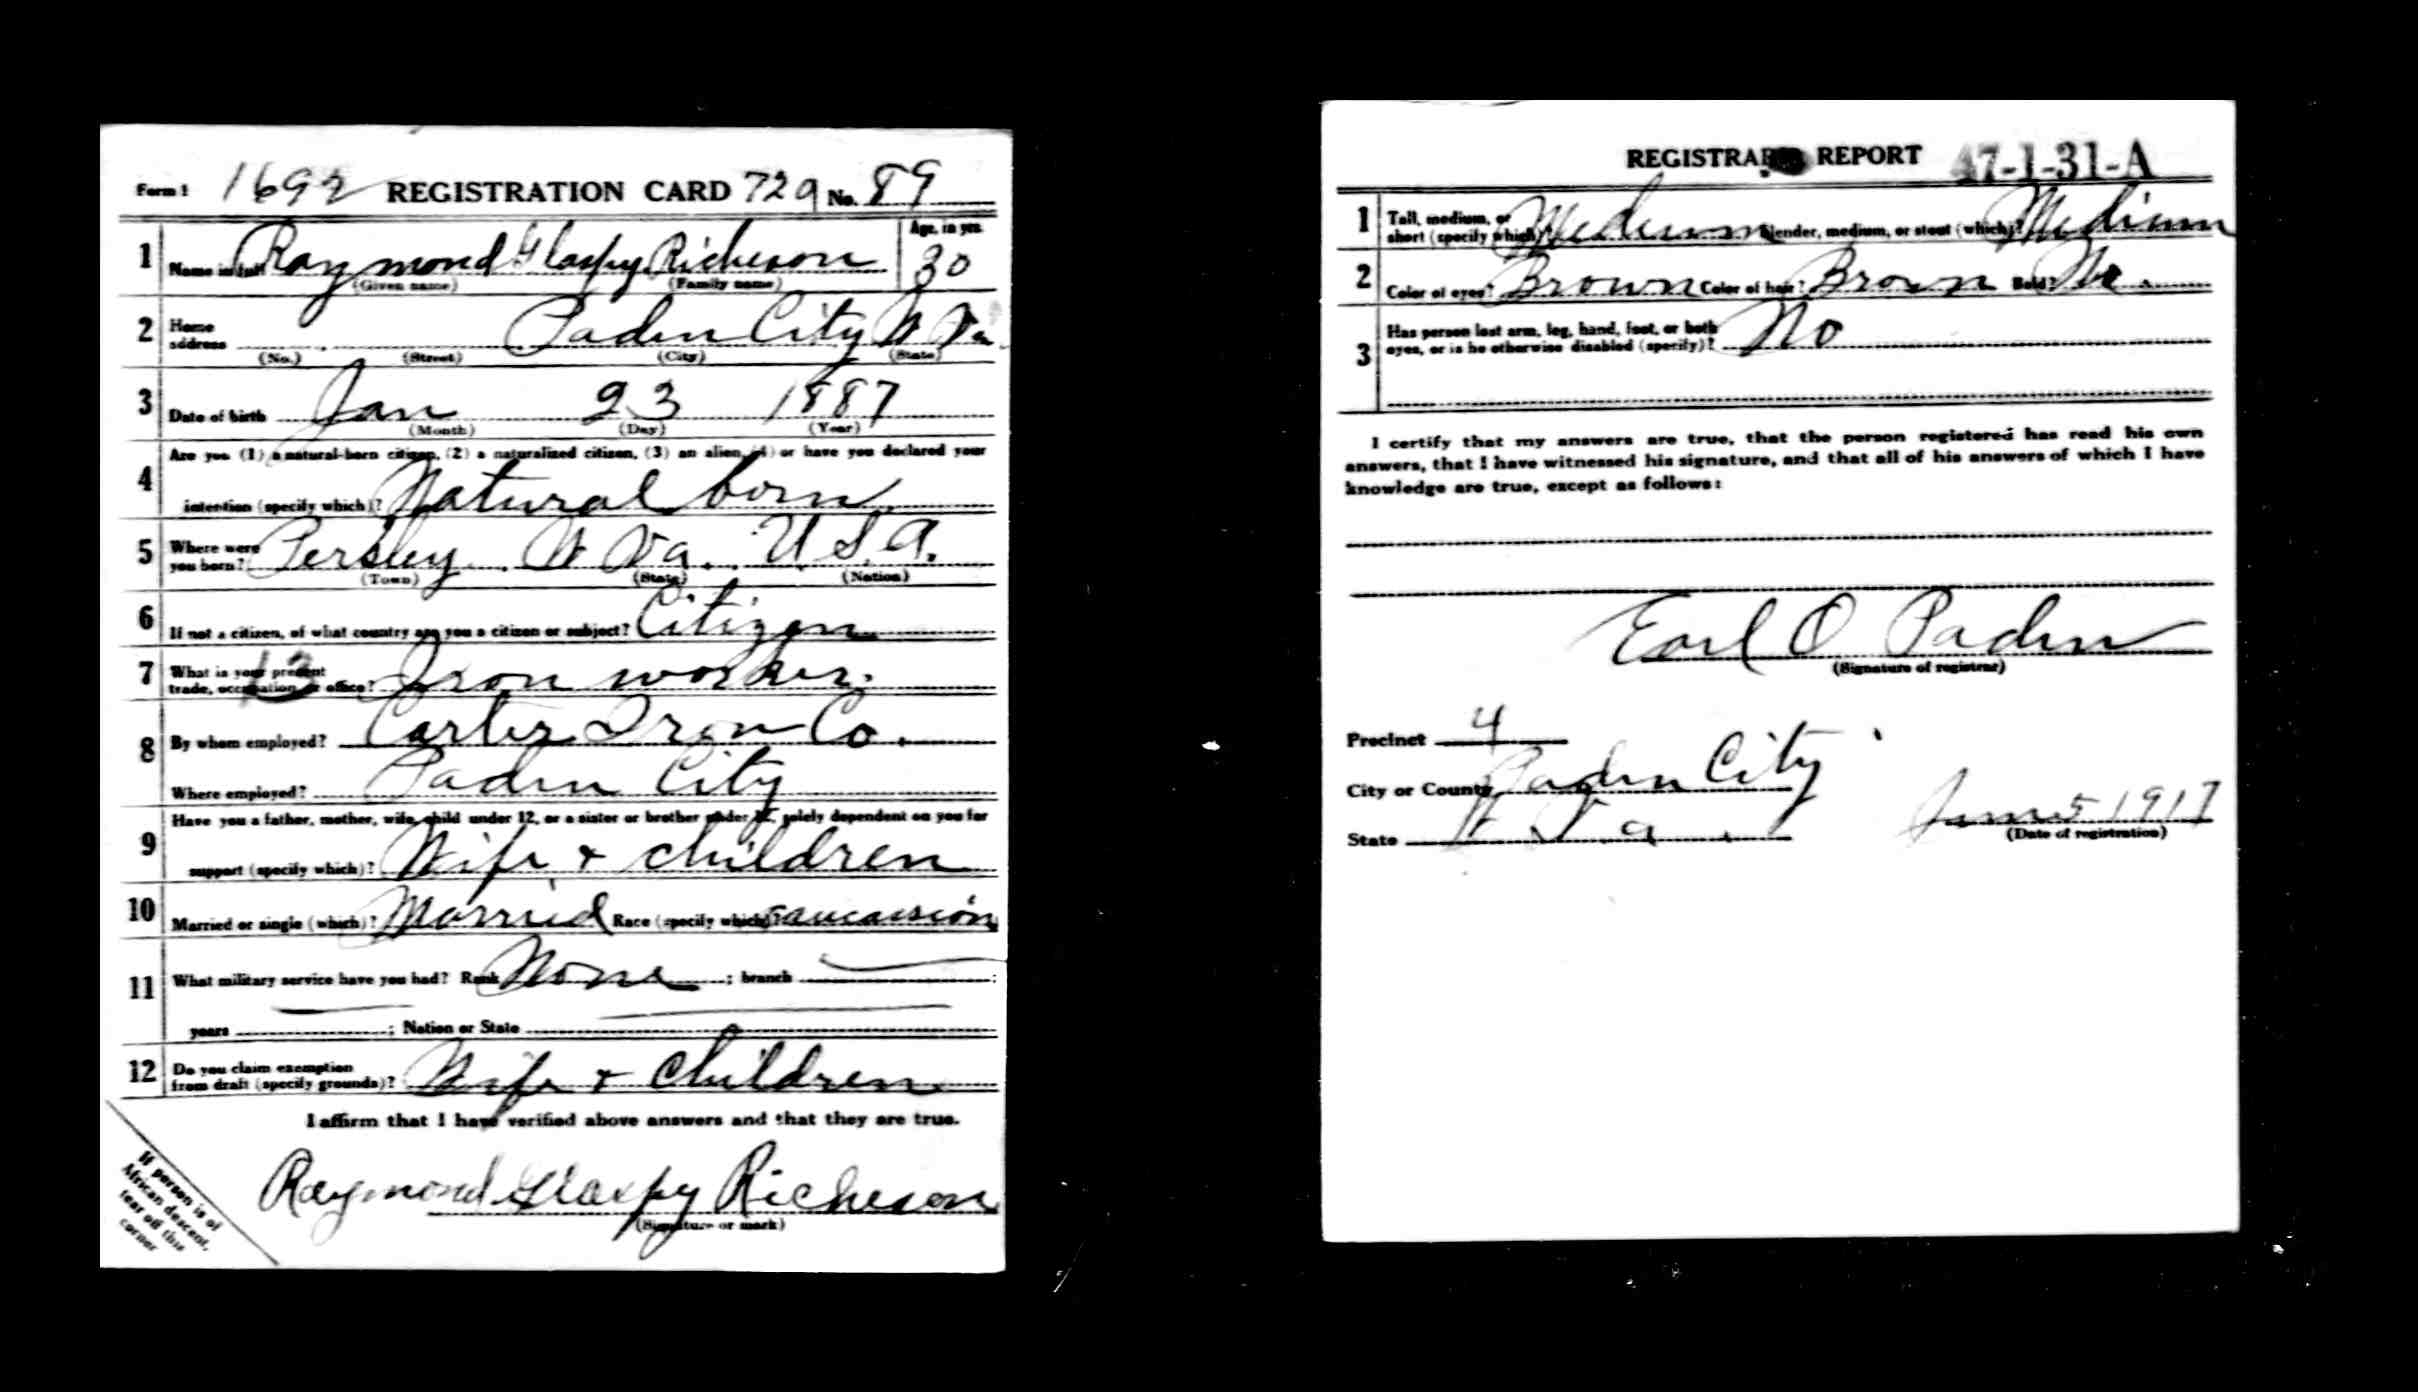 Form 1 1692 REGISTRATION CARD 729 No. 89
1 Name in full Raymond Glaspy Richeson Age, in yrs. 30
(Given name) (Family name)
2 Home address Paden City W Va.
(No.) (Street) (City) (State)
3 Date of birth Jan 23 1887
(Month) (Day) (Year)
4 Are you (1) a natural-born citizen, (2) a naturalized citizen, (3) an alien, (4) or have you declared your
intention (specify which)? Natural born
5 Where were you born? W Va. U.S.A.
(Town) (State) (Nation)
6 If not a citizen, of what country are you a citizen or subject? Citizen
7 What is your present trade, occupation or office? 13 Iron worker.
8 By whom employed? Carter Iron Co.
Where employed? Paden City
9 Have you a father, mother, wife, child under 12, or a sister or brother under 12, solely dependent on you for
support (specify which)? Wife + children
10 Married or single (which)? Married Race (specify which)? Caucassion
11 What military service have you had? Rank None ; branch ;
years ; Nation or State
12 Do you claim exemption from draft (specify grounds)? Wife + Children
I affirm that I have verified above answers and that they are true.
Raymond Glaspy Richeson
(Signature or mark)
If person is of
African descent,
tear off this
corner
REGISTRAR'S REPORT 47-1-31-A
1 Tall, medium, or short (specify which)? Medium Slender, medium, or stout (which)? Medium
2 Color of eyes? Brown Color of hair? Brown Bald? No
3 Has person lost arm, leg, hand, foot, or both
eyes, or is he otherwise disabled (specify)? No
I certify that my answers are true, that the person registered has read his own
answers, that I have witnessed his signature, and that all of his answers of which I have
knowledge are true, except as follows:
Earl O Paden
(Signature of registrar)
Precinct 4
City or County Paden City
State W Va. June 5 1917
(Date of registration)